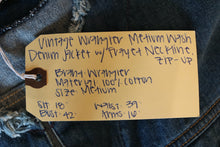 Vintage Wrangler Medium Wash
Denim Jacket w/ Frayed Neckline,
Zip-up
Brand: Wrangler
Material: 100% Cotton
Size: Medium
Slt: 18 Waist: 39
Bust: 42 Arms: 16